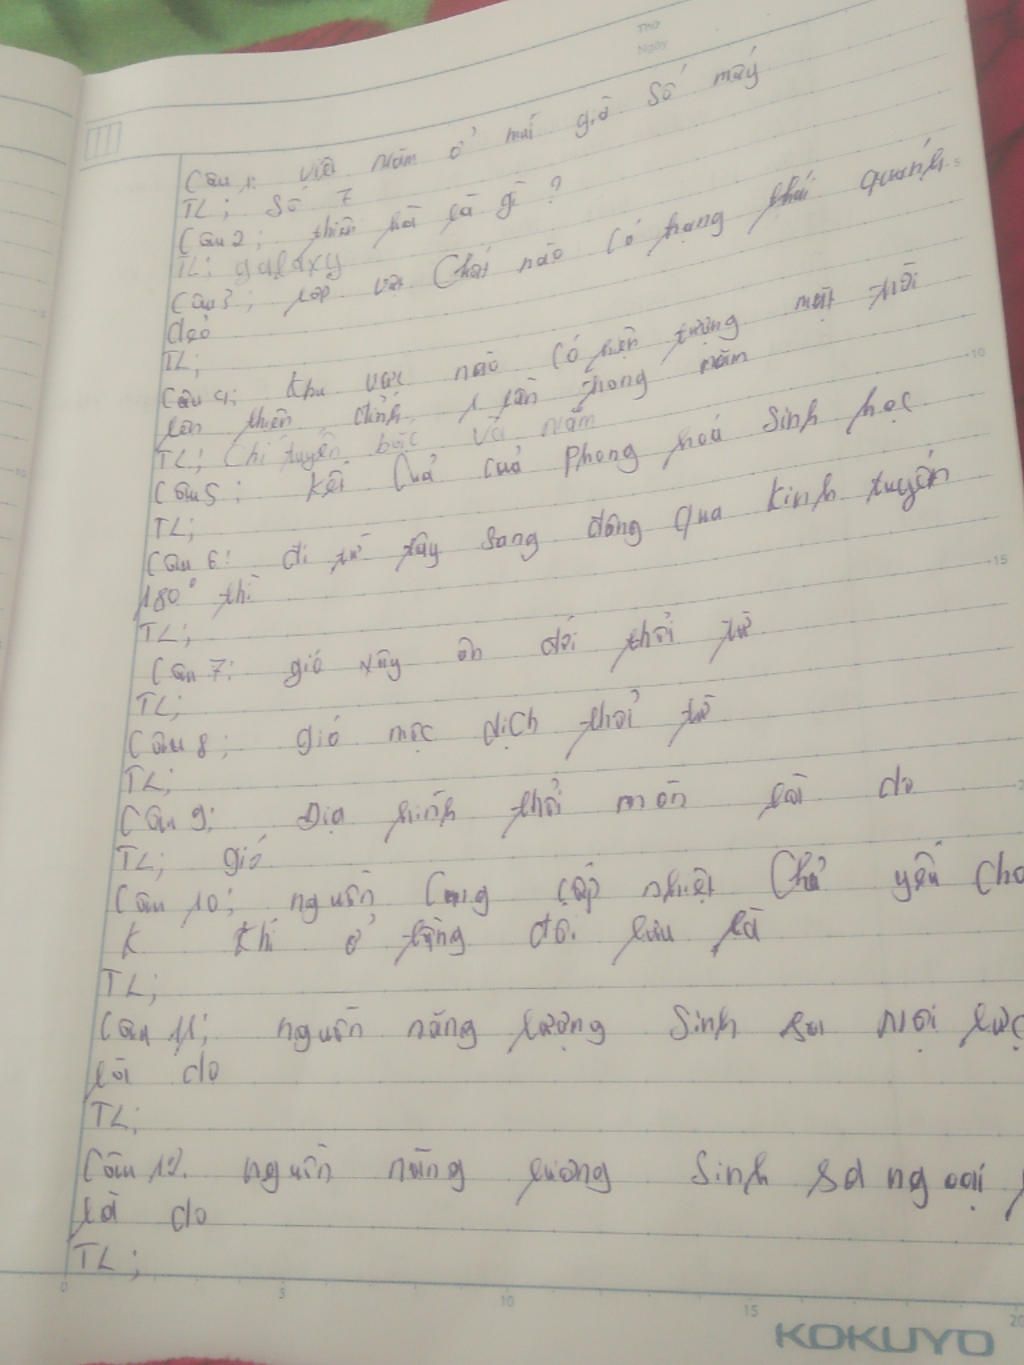 Thứ
Ngày
Câu 1: Việt Nam ở múi giờ số mấy
TL; Số 7
Câu 2; thiên hà là gì ?
TL: galaxy
Câu 3; lớp vật Chất nào có trạng thái quánh
dẻo
TL;
Câu 4: khu vực nào có hiện tượng mặt trời
lên thiên đỉnh 1 lần trong năm
TL; Chí tuyến bắc và nam
Câu 5: kết quả của phong hoá sinh học
TL;
Câu 6: đi từ tây sang đông qua kinh tuyến
180° thì
TL;
Câu 7: gió tây ôn đới thổi từ
TL;
Câu 8; gió mậc dịch thổi từ
TL;
Câu 9: Địa hình thổi mòn là do
TL; gió
Câu 10; nguồn Cung cấp nhiệt Chủ yếu Cho
k khí ở tầng đối lưu là
TL;
Câu 11; nguồn năng lượng Sinh ra Nội lực
là do
TL;
Câu 12. nguồn năng lương Sinh ra ngoại
là do
TL;
5
10
15
10
0
5
10
15
20
KOKUYO